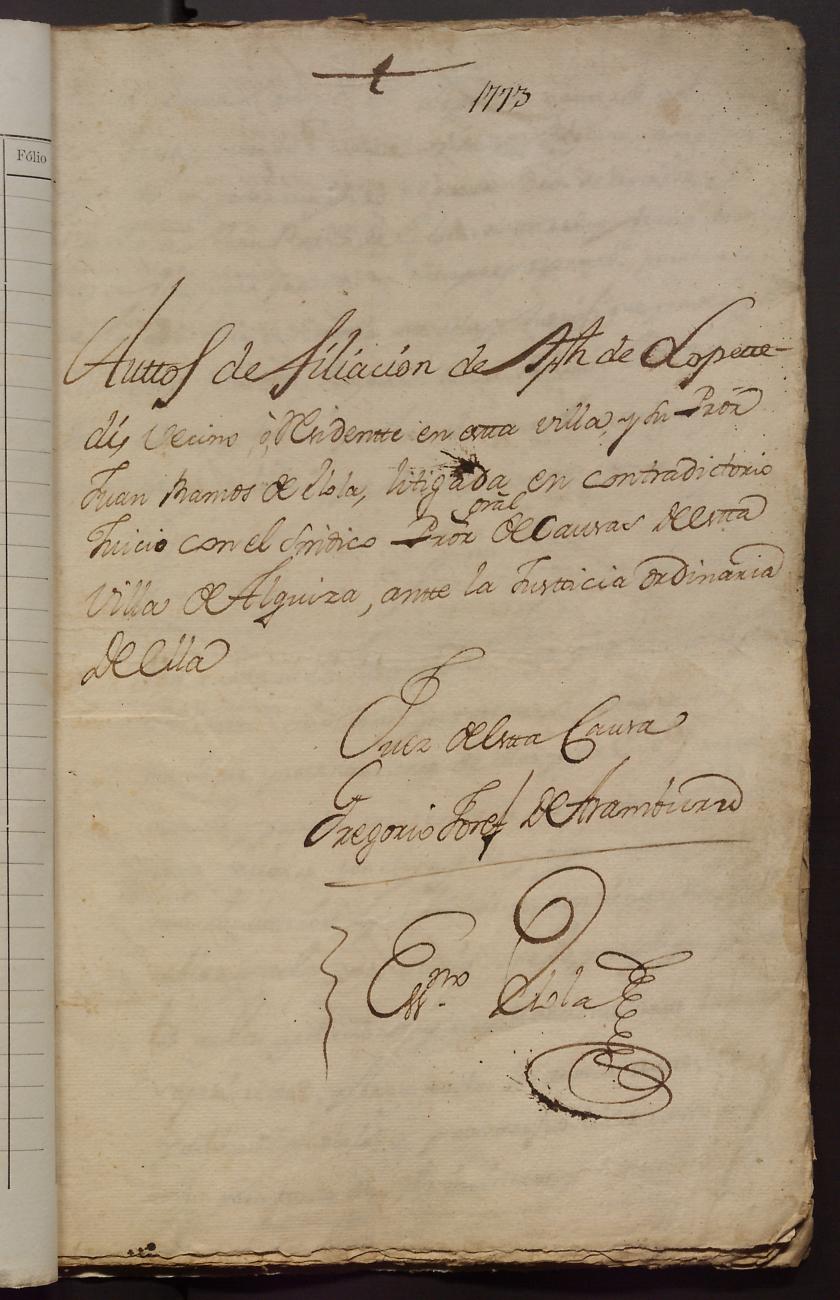 Fólio
1773
Auttos de filiación de Jph de Lopette-
dis, vecino ò Residentte en estta villa, y su Pror
Juan Ramos de elola, litigada en contradictorio
Juicio con el sindico Pror gral de Causas de estta
Villa de Alquiza, antte la Justicia ordinaria
de ella
Juez de estta Causa
Gregorio Joseph de Aramburu
Essno Elola